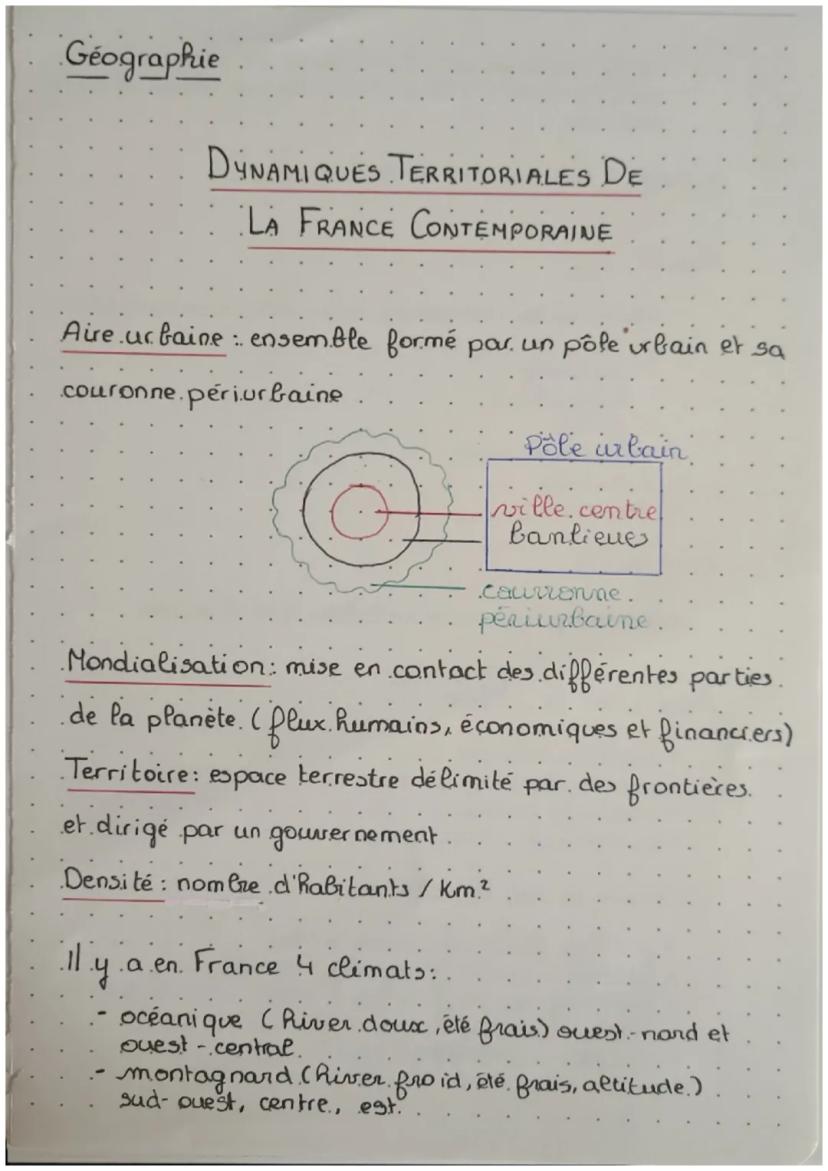 Géographie
DYNAMIQUES TERRITORIALES DE
LA FRANCE CONTEMPORAINE
Aire urbaine : ensemble formé par un pôle urbain et sa
couronne périurbaine
Pôle urbain
ville centre
banlieues
courronne
périurbaine
Mondialisation : mise en contact des différentes parties
de la planète (flux humains, économiques et financiers)
Territoire : espace terrestre délimité par des frontières
et dirigé par un gouvernement
Densité : nombre d'habitants / Km²
Il y a en France 4 climats :
- océanique (hiver doux, été frais) ouest-nord et
ouest-central
- montagnard (hiver froid, été frais, altitude)
sud-ouest, centre, est.